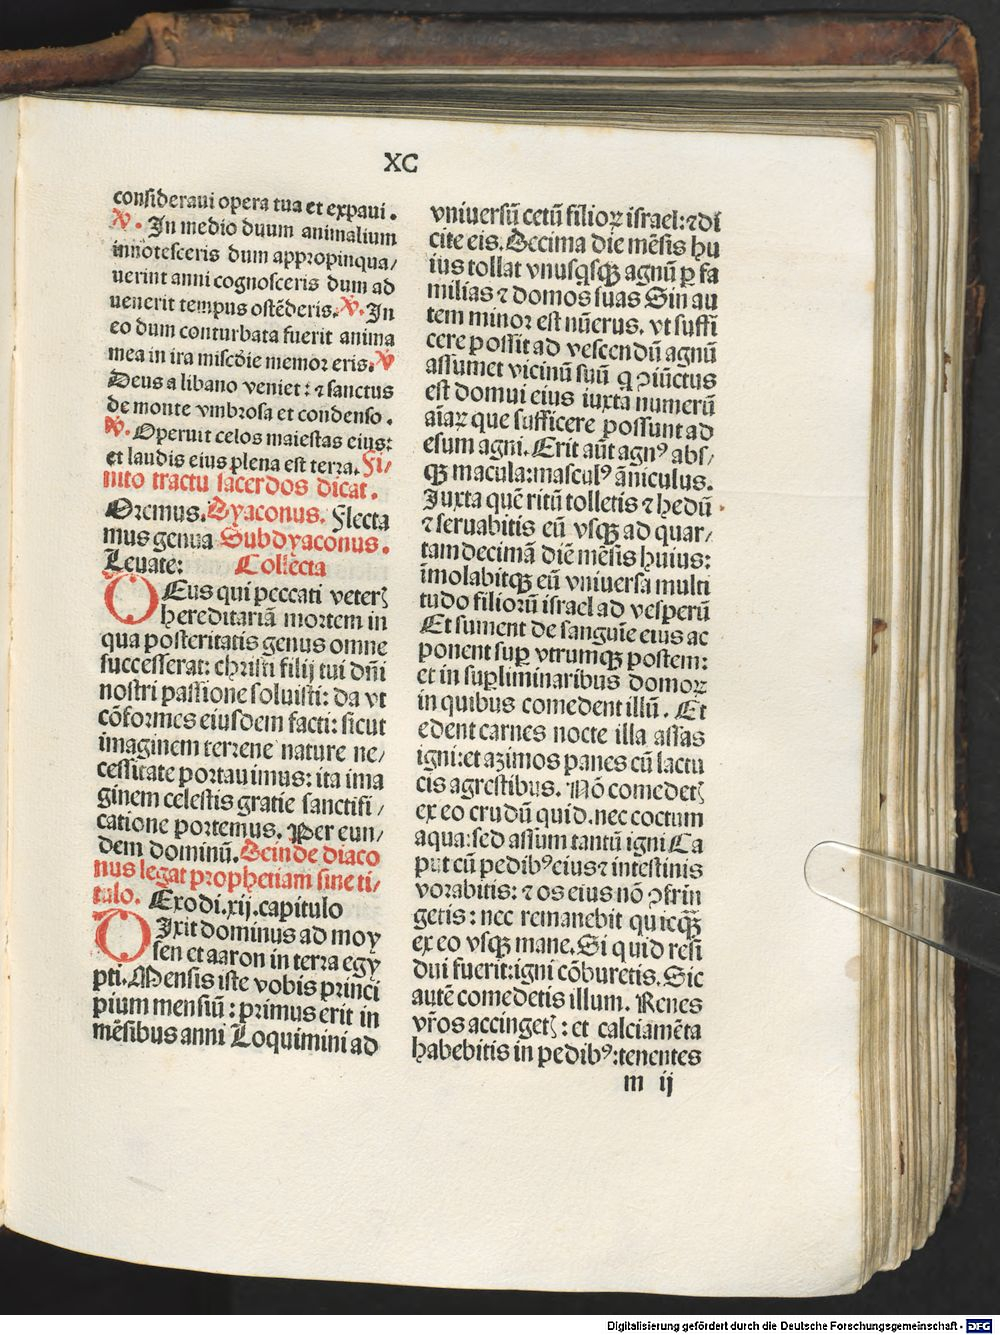 XC
consideraui opera tua et expaui.
℣. In medio duum animalium
innotesceris dum appropinqua/
uerint anni cognosceris dum ad
uenerit tempus ostēderis. ℣. In
eo dum conturbata fuerit anima
mea in ira miscdie memor eris. ℣
Deus a libano veniet: ⁊ sanctus
de monte vmbrosa et condenso.
℣. Operuit celos maiestas eius:
et laudis eius plena est terra. Fi/
nito tractu sacerdos dicat.
Oremus. Dyaconus. Flecta
mus genua Subdyaconus.
Leuate: Collecta
DEus qui peccati veterꝭ
hereditariā mortem in
qua posteritatis genus omne
successerat: christi filij tui dn̄i
nostri passione soluisti: da vt
cōformes eiusdem facti: sicut
imaginem terrene nature ne/
cessitate portauimus: ita ima
ginem celestis gratie sanctifi/
catione portemus. Per eun/
dem dominū. Deinde diaco
nus legat prophetiam sine ti/
tulo. Exodi.xij.capitulo
DIxit dominus ad moy
sen et aaron in terra egy
pti. Mensis iste vobis princi
pium mensiū: primus erit in
mēsibus anni Loquimini ad
vniuersū cetū filioꝝ israel: ⁊ di
cite eis. Decima die mēsis hu
ius tollat vnusqsqꝫ agnū ꝑ fa
milias ⁊ domos suas Sin au
tem minor est nūerus. vt suffi
cere possit ad vescendū agnū
assumet vicinū suū q ꝯiūctus
est domui eius iuxta numerū
aīaꝝ que sufficere possunt ad
esum agni. Erit aūt agnꝰ abs/
qꝫ macula: masculꝰ āniculus.
Juxta quē ritū tolletis ⁊ hedū
⁊ seruabitis eū vsqꝫ ad quar/
tamdecimā diē mēsis huius:
īmolabitqꝫ eū vniuersa multi
tudo filiorū israel ad vesperū
Et sument de sanguīe eius ac
ponent suꝑ vtrumqꝫ postem:
et in suꝑliminaribus domoꝝ
in quibus comedent illū. Et
edent carnes nocte illa assas
igni: et azimos panes cū lactu
cis agrestibus. Nō comedetꝭ
ex eo crudū quid. nec coctum
aqua: sed assum tantū igni Ca
put cū pedibꝰ eius ⁊ intestinis
vorabitis: ⁊ os eius nō ꝯfrin
getis: nec remanebit quicqꝫ
ex eo vsqꝫ mane. Si quid resi
dui fuerit: igni cōburetis. Sic
autē comedetis illum. Renes
vr̄os accingetꝭ: et calciamēta
habebitis in pedibꝰ: tenentes
m ij
Digitalisierung gefördert durch die Deutsche Forschungsgemeinschaft - DFG